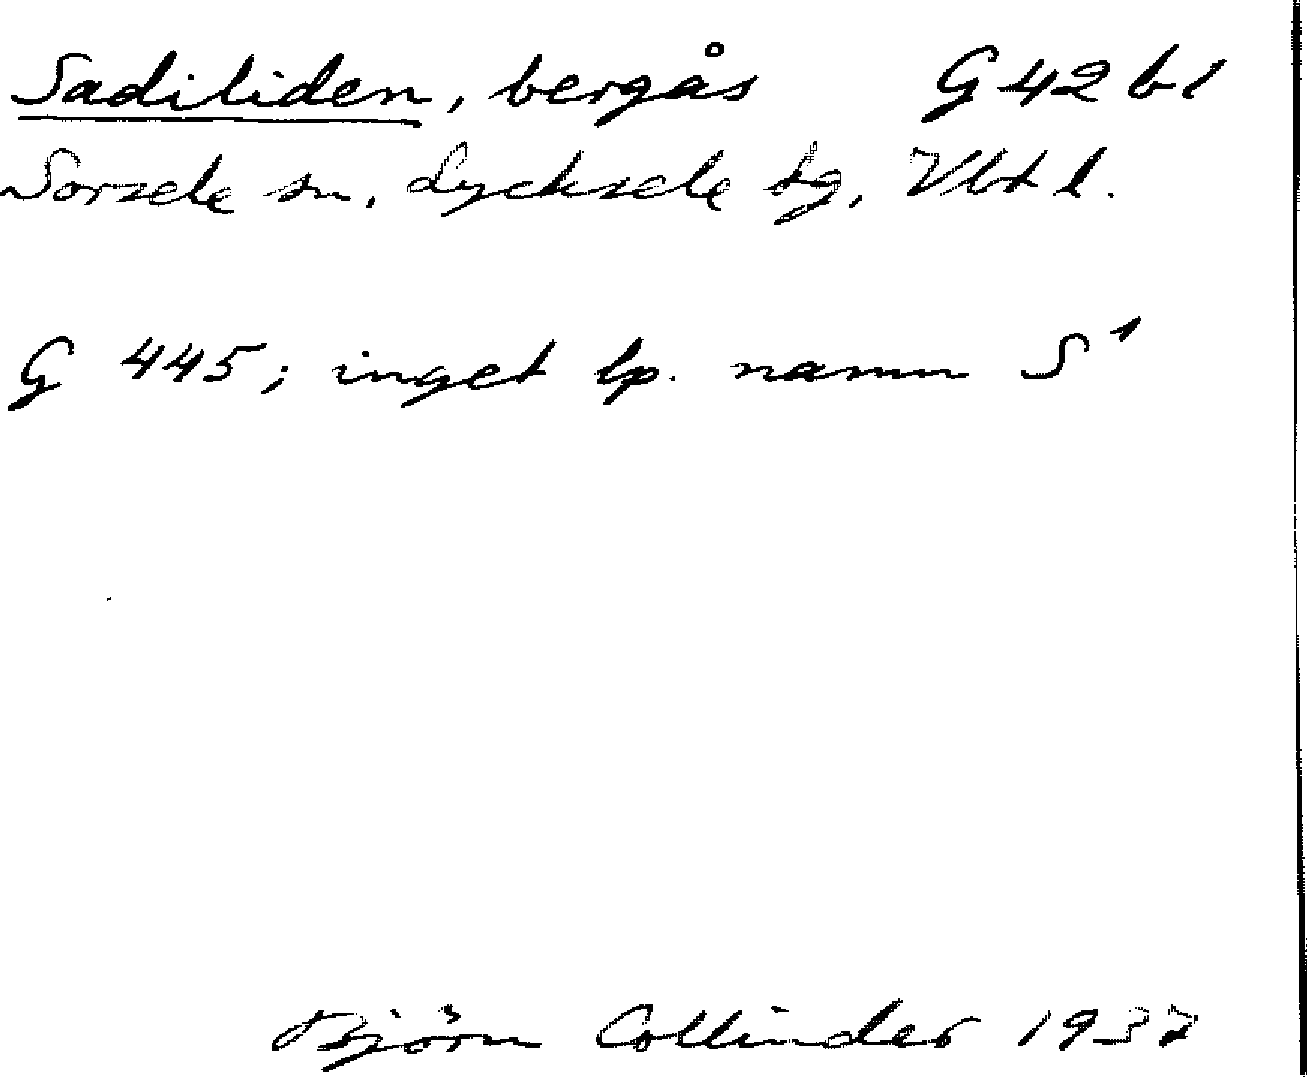 Sadiliden, bergås G 42 b1
Sorsele sn, Lycksele tg, Vbt l.
G 445; inget lp. namn S¹
Björn Collinder 1937